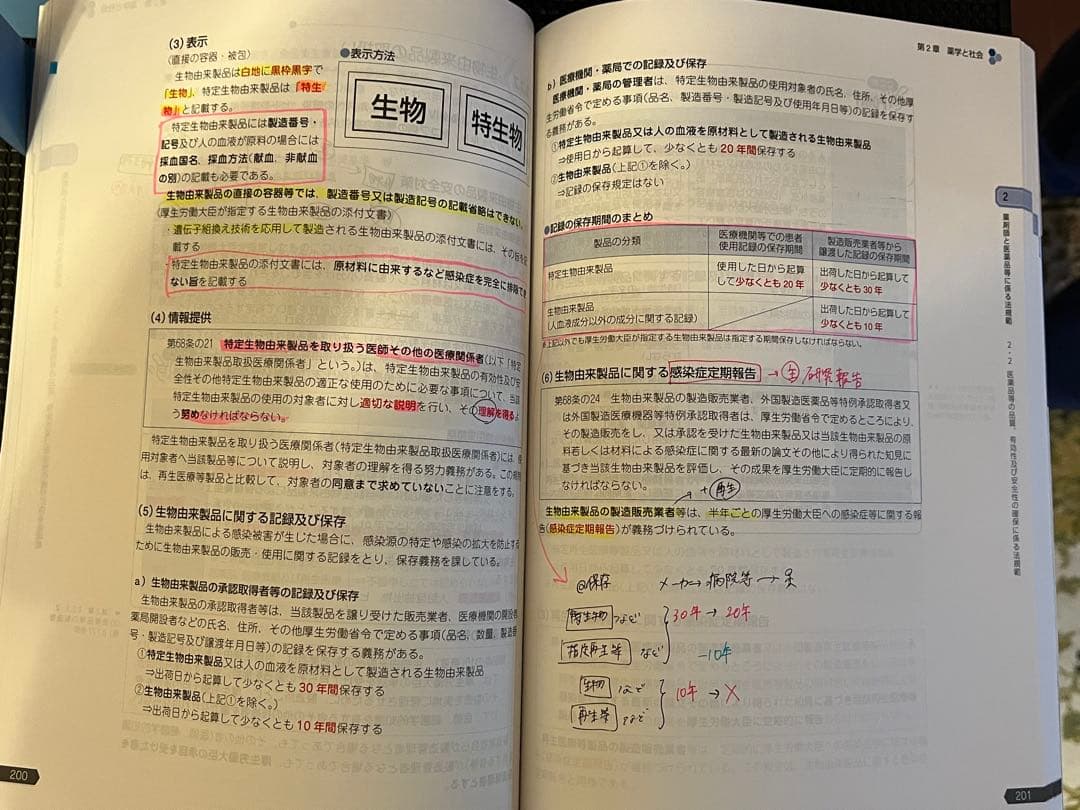 (3) 表示
(直接の容器・被包)
生物由来製品は白地に黒枠黒字で
「生物」、特定生物由来製品は「特生
物」と記載する。
特定生物由来製品には製造番号・
記号及び人の血液が原料の場合には
採血国名、採血方法(献血、非献血
の別)の記載も必要である。
●表示方法
生物
特生物
生物由来製品の直接の容器等では、製造番号又は製造記号の記載省略はできない。
(厚生労働大臣が指定する生物由来製品の添付文書)
・遺伝子組換え技術を応用して製造される生物由来製品の添付文書には、その旨を記
載する
特定生物由来製品の添付文書には、原材料に由来するなど感染症を完全に排除でき
ない旨を記載する
(4) 情報提供
第68条の21 特定生物由来製品を取り扱う医師その他の医療関係者(以下「特定
生物由来製品取扱医療関係者」という。)は、特定生物由来製品の有効性及び安
全性その他特定生物由来製品の適正な使用のために必要な事項について、当該
特定生物由来製品の使用の対象者に対し適切な説明を行い、その理解を得るよ
う努めなければならない。
特定生物由来製品を取り扱う医療関係者(特定生物由来製品取扱医療関係者)には、使
用対象者へ当該製品等について説明し、対象者の理解を得る努力義務がある。この規
は、再生医療等製品と比較して、対象者の同意まで求めていないことに注意をする。
(5) 生物由来製品に関する記録及び保存
生物由来製品による感染被害が生じた場合に、感染源の特定や感染の拡大を防止する
ために生物由来製品の販売・使用に関する記録をとり、保存義務を課している。
a) 生物由来製品の承認取得者等の記録及び保存
生物由来製品の承認取得者等は、当該製品を譲り受けた販売業者、医療機関の開設者
薬局開設者などの氏名、住所、その他厚生労働省令で定める事項(品名、数量、製造番
号・製造記号及び譲渡年月日等)の記録を保存する義務がある。
①特定生物由来製品又は人の血液を原材料として製造される生物由来製品
⇒出荷日から起算して少なくとも30年間保存する
②生物由来製品(上記①を除く。)
⇒出荷日から起算して少なくとも10年間保存する
200
第2章 薬学と社会
b) 医療機関・薬局での記録及び保存
医療機関・薬局の管理者は、特定生物由来製品の使用対象者の氏名、住所、その他厚
生労働省令で定める事項(品名、製造番号・製造記号及び使用年月日等)の記録を保存す
る義務がある。
①特定生物由来製品又は人の血液を原材料として製造される生物由来製品
⇒使用日から起算して、少なくとも20年間保存する
②生物由来製品(上記①を除く。)
⇒記録の保存規定はない
●記録の保存期間のまとめ
製品の分類
医療機関等での患者
使用記録の保存期間
製造販売業者等から
譲渡した記録の保存期間
特定生物由来製品
使用した日から起算
して少なくとも20年
出荷した日から起算して
少なくとも30年
生物由来製品
(人血液成分以外の成分に関する記録)
出荷した日から起算して
少なくとも10年
※上記以外でも厚生労働大臣が指定する生物由来製品は指定する期間保存しなければならない。
(6) 生物由来製品に関する感染症定期報告 → 全 研究報告
第68条の24 生物由来製品の製造販売業者、外国製造医薬品等特例承認取得者又
は外国製造医療機器等特例承認取得者は、厚生労働省令で定めるところにより、
その製造販売をし、又は承認を受けた生物由来製品又は当該生物由来製品の原
料若しくは材料による感染症に関する最新の論文その他により得られた知見に
基づき当該生物由来製品を評価し、その成果を厚生労働大臣に定期的に報告し
なければならない。
+ 再生
生物由来製品の製造販売業者等は、半年ごとの厚生労働大臣への感染症等に関する報
告(感染症定期報告)が義務づけられている。
@保存 メーカー→病院等→
特生物 など
指定再生等 など
30年→20年
-10年
生物 など
再生等 など
10年→×
2
薬剤師と医薬品等に係る法規範
2・2 医薬品等の品質、有効性及び安全性の確保に係る法規範
201